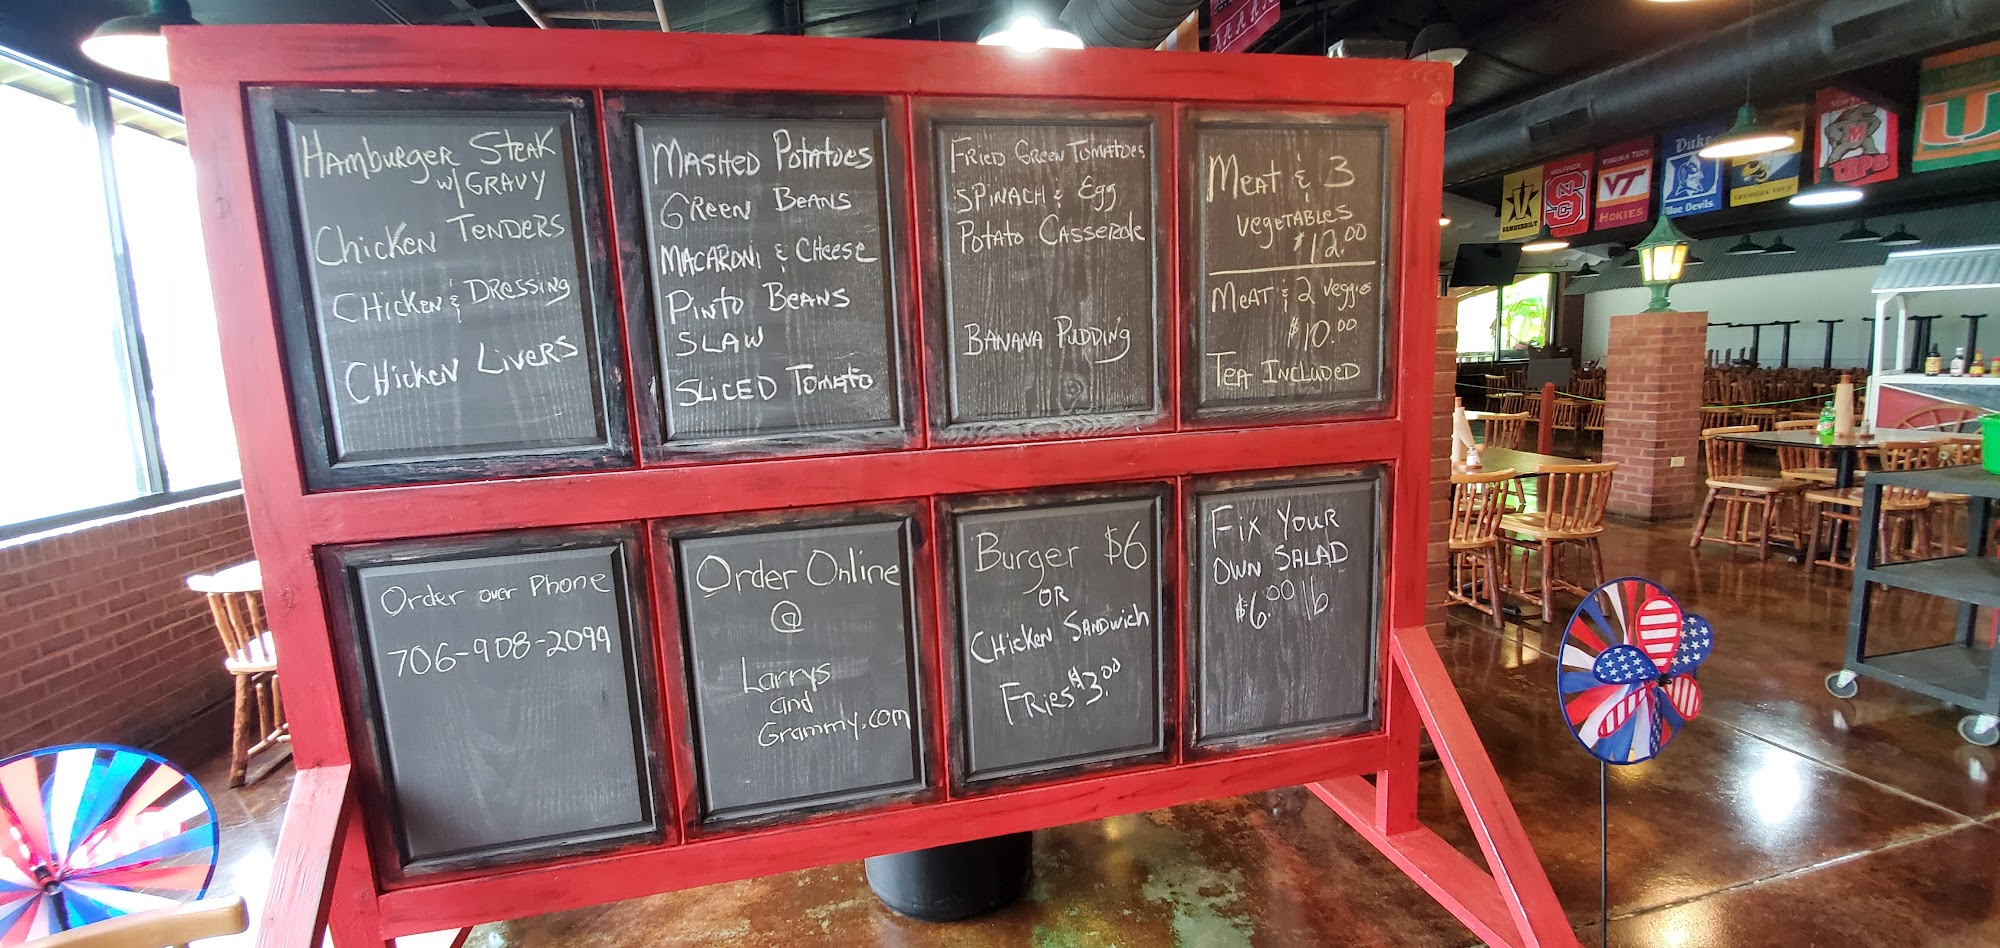 Hamburger Steak
w/ Gravy
Chicken Tenders
Chicken & Dressing
Chicken Livers
Mashed Potatoes
Green Beans
Macaroni & Cheese
Pinto Beans
Slaw
Sliced Tomato
Fried Green Tomatoes
Spinach & Egg
Potato Casserole
Banana Pudding
Meat & 3
Vegetables
$12.00
Meat & 2 Veggies
$10.00
Tea Included
Order over Phone
706-908-2099
Order Online
@
Larrys
and
Grammy.com
Burger $6
OR
Chicken Sandwich
Fries $3.00
Fix Your
Own Salad
$6.00 lb
VANDERBILT
WOLFPACK
S
VIRGINIA TECH
VT
HOKIES
Duke
Blue Devils
M
TERPS
U